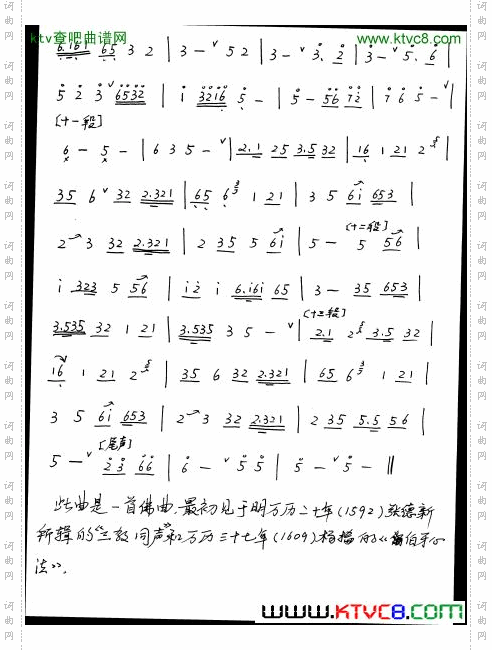 ktv查吧曲谱网 www.ktvc8.com
6.161 65 3 2 | 3 - ˅ 5 2 | 3 - ˅ 3 . 2 | 3 - ˅ 5 . 6 |
5 2 3 ˅ 6532 | i 3216 5 - | 5 - 56 72 | 7 6 5 - ˅ |
[十一段]
6 - 5 - - | 6 3 5 - ˅ | 2.1 25 3.5 32 | 16 1 21 2 5 |
35 6 ˅ 32 2.321 | 65 6 3 1 21 | 3 5 6i 653 |
[十二段]
2 3 32 2.321 | 2 35 5 6i | 5 - 5 56 |
i 323 5 56 | i2 i 6.i6i 65 | 3 - 35 653 |
[十三段]
3.535 32 1 21 | 3.535 3 5 - ˅ | 2.1 2 5 3.5 32 |
16 1 21 2 5 | 35 6 32 2.321 | 65 6 3 1 21 |
3 5 6i 653 | 2 3 32 2.321 | 2 35 5.5 56 |
[尾声]
5 - ˅ 23 66 | 6 - ˅ 5 5 | 5 - ˅ 5 - ‖
此曲是一首佛曲.最初见于明万历二十年(1592)张德新
所辑的“三教同声”和万历三十七年(1609)杨抡的《伯牙心
法》.
www.KTVC8.com
词曲网